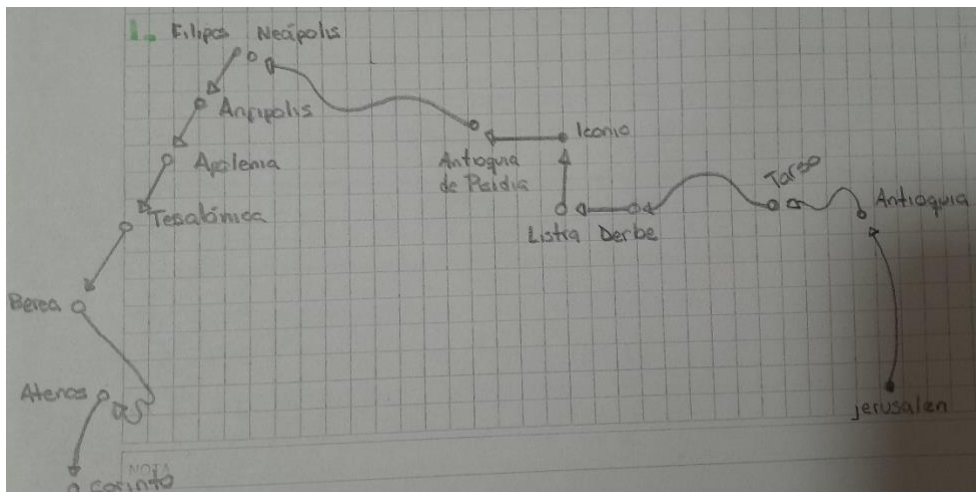 1. Filipos Neápolis
Anfípolis
Apolonia
Tesalónica
Berea
Atenas
Corinto
Iconio
Antioquia
de Pisidia
Listra Derbe
Tarso
Antioquia
jerusalen
NOTA